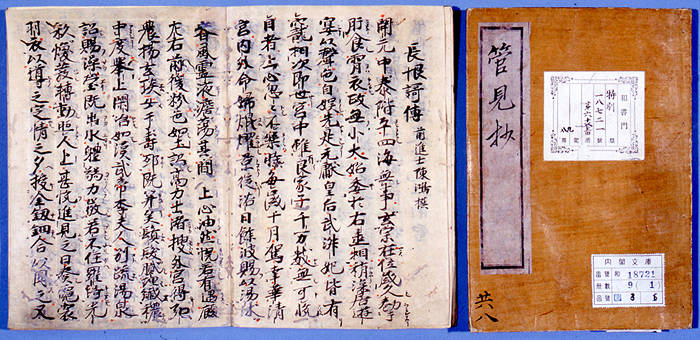 長恨謌傳 前進士陳鴻撰
開元中泰階平四海無事玄宗在位歳久勌于
旰食宵衣政無小大始委於右丞相稍深居遊
宴以聲色自娯先是元獻皇后武淑妃皆有
寵相次即世宮中雖良家子千万數無可悦
目者上心忽々不樂時每歳十月駕幸華清
宮内外命婦熠耀景從浴日餘波賜以湯沐
春風靈液澹蕩其間上心油然若有遇顧
左右前後粉色如土詔高力士潛搜外宮得弘
農楊玄琰女于壽邸既笄矣鬢髮膩理纖穠
中度舉止閑冶如漢武帝李夫人別疏湯泉
詔賜澡瑩既出水體弱力微若不任羅綺光
彩煥發轉動照人上甚悦進見之日奏霓裳
羽衣以導之定情之夕授金釵鈿合以固之又
管見抄
和書門
特別
一八七二一
共八
内閣文庫
番號 和 18721
冊數 9(1)
函號 3 6